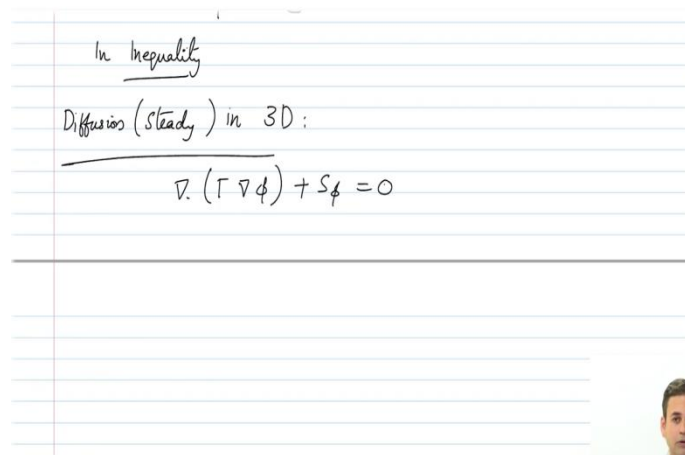 In Inequality
Diffusion (Steady) in 3D :
∇. (Γ ∇ φ) + Sφ = 0